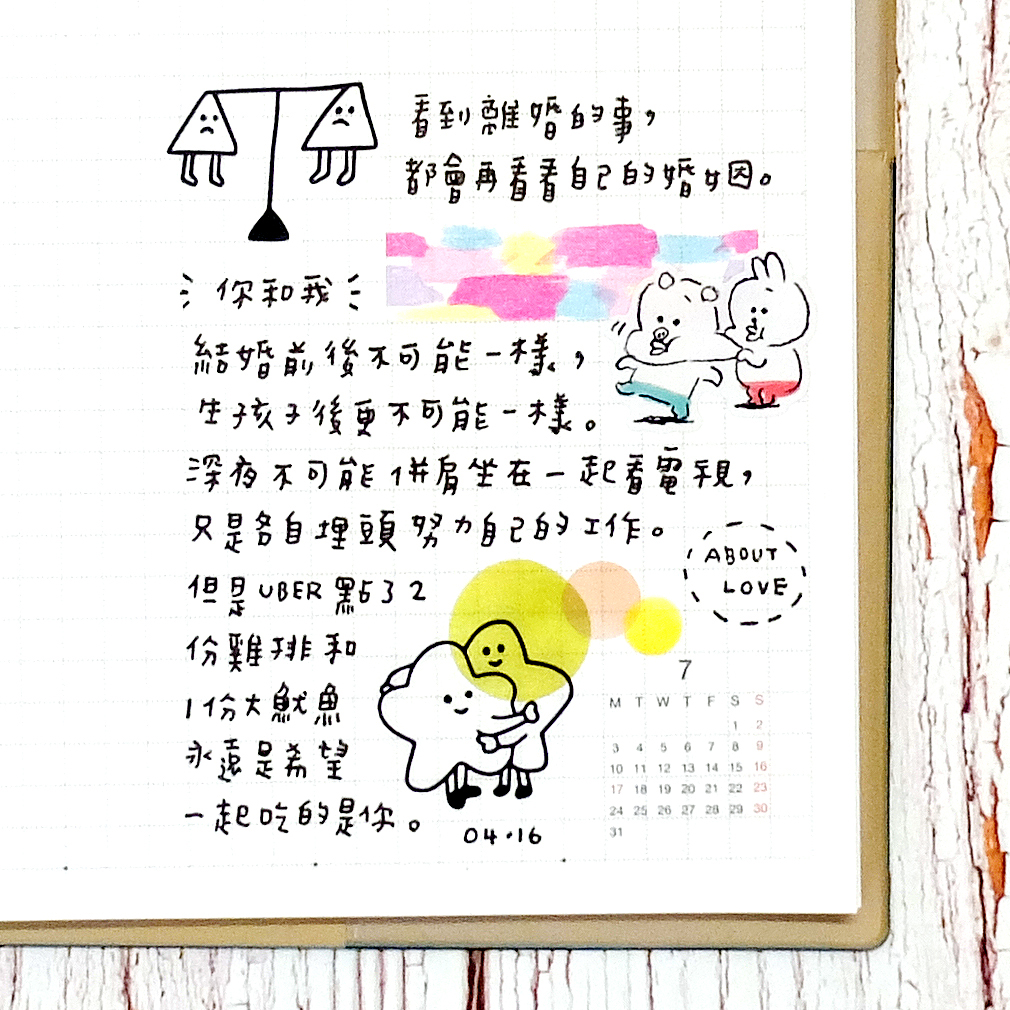 看到離婚的事，
都會再看看自己的婚姻。
你和我
結婚前後不可能一樣，
生子孩子後更不可能一樣。
深夜不可能併肩坐在一起看電視，
只是各自埋頭努力自己的工作。
但是UBER點532
份雞排和
1份大魷魚
永遠是希望
一起吃的是你。
04.16
ABOUT
LOVE
7
M T W T F S S
1 2
3 4 5 6 7 8 9
10 11 12 13 14 15 16
17 18 19 20 21 22 23
24 25 26 27 28 29 30
31